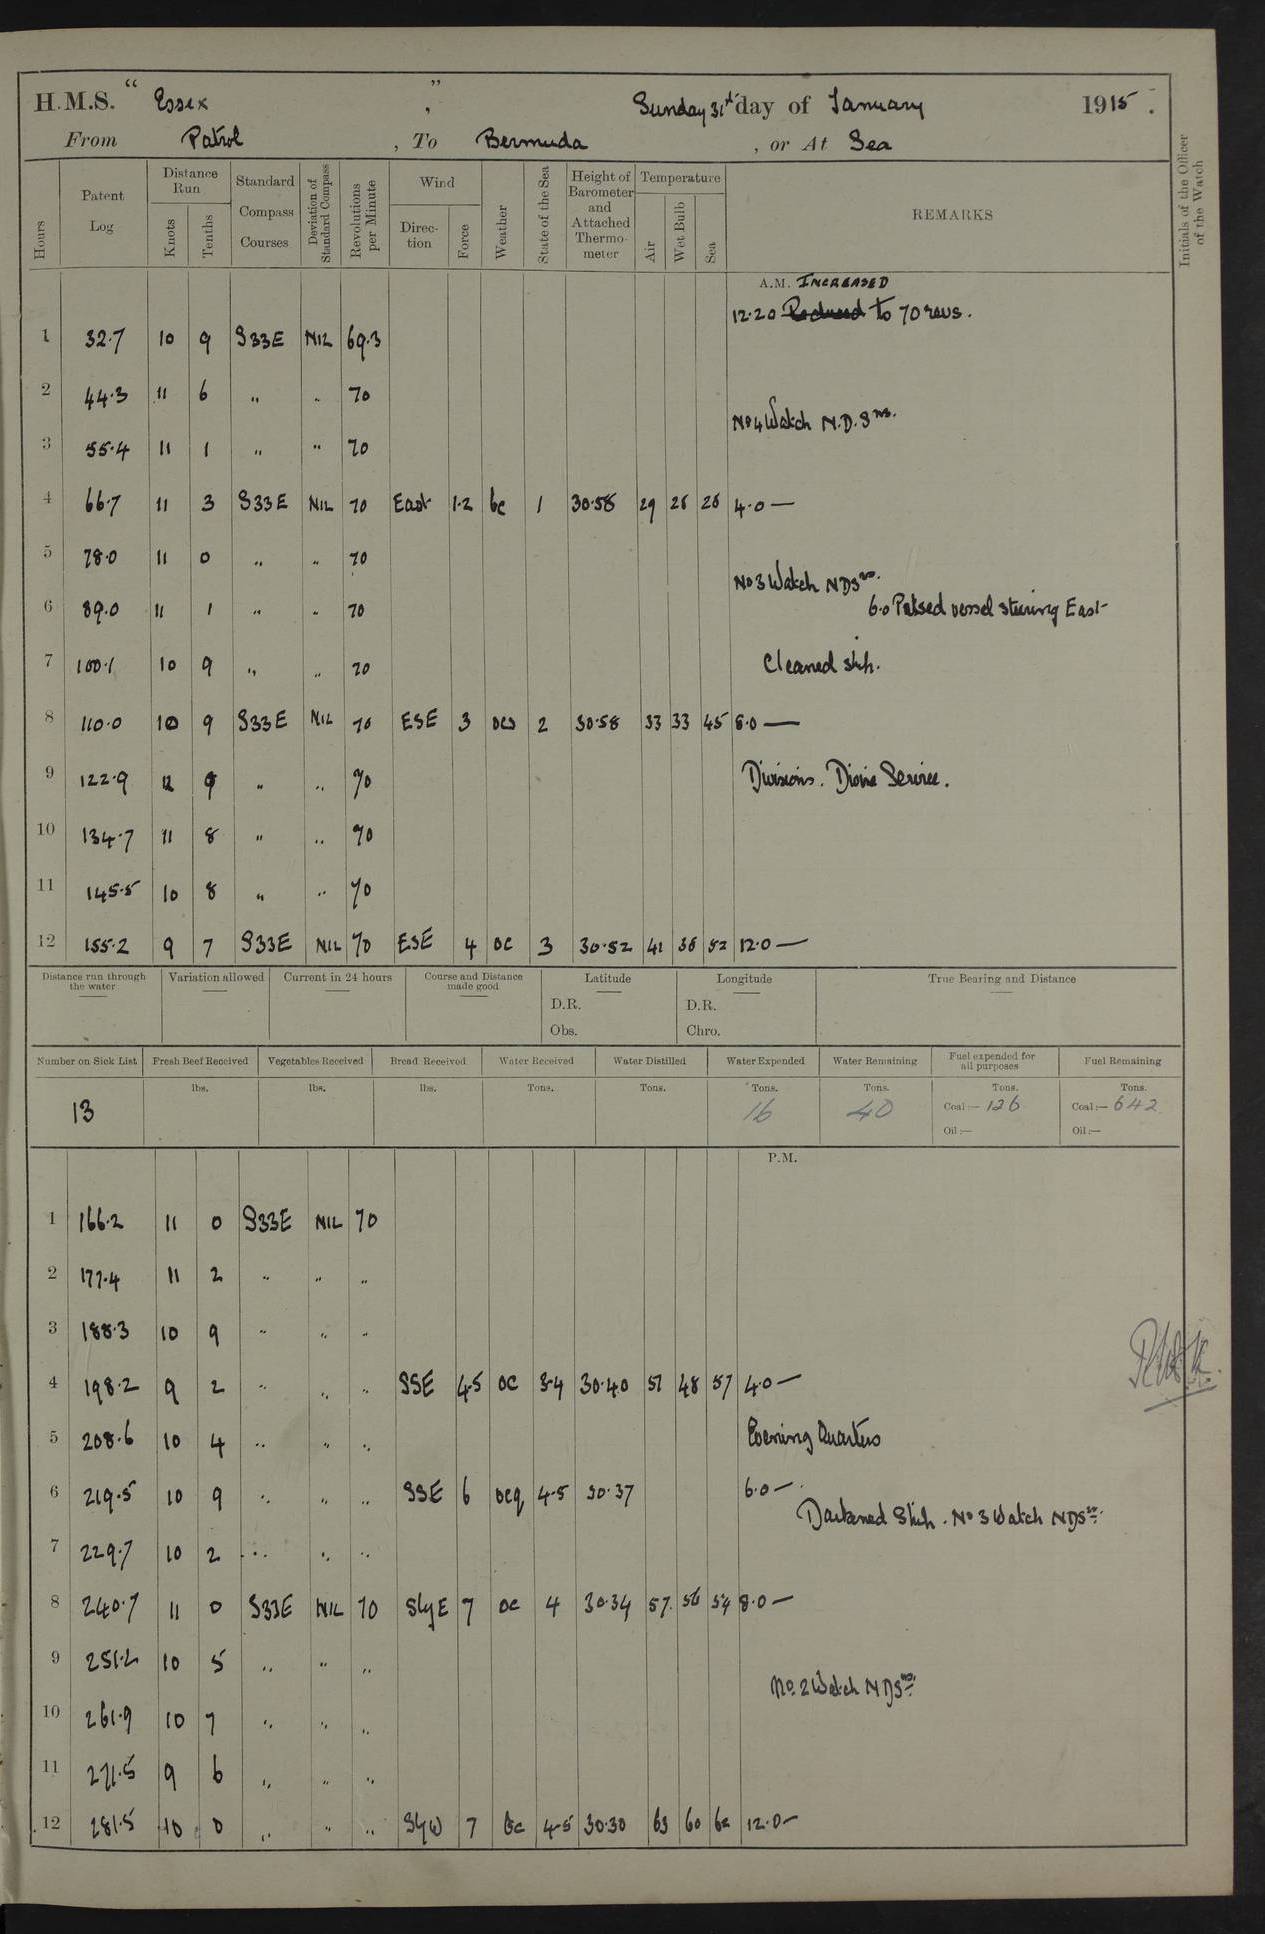 H.M.S. " Essex ", Sunday 31st day of January 1915.
From Patrol, To Bermuda, or At Sea
Hours Patent Log Distance Run Knots Tenths Standard Compass Courses Deviation of Standard Compass Revolutions per Minute Wind Direction Force Weather State of the Sea Height of Barometer and Attached Thermometer Temperature Air Wet Bulb Sea REMARKS Initials of the Officer of the Watch
A.M. INCREASED
12.20 Reduced to 70 revs.
1 32.7 10 9 S33E NIL 69.3
2 44.3 11 6 " " 70
No 4 Watch N.D.Sns.
3 55.4 11 1 " " 70
4 66.7 11 3 S33E NIL 70 East 1.2 bc 1 30.58 29 28 28 4.0 —
5 78.0 11 0 " " 70
No 3 Watch NDSns.
6 89.0 11 1 " " 70 6.0 Passed vessel steering East
7 100.1 10 9 " " 70 Cleaned ship.
8 110.0 10 9 S33E NIL 70 ESE 3 ocs 2 30.58 33 33 45 8.0 —
9 122.9 12 9 " " 70 Divisions. Divine Service.
10 134.7 11 8 " " 70
11 145.5 10 8 " " 70
12 155.2 9 7 S33E NIL 70 ESE 4 oc 3 30.52 41 38 52 12.0 —
Distance run through the water Variation allowed Current in 24 hours Course and Distance made good Latitude Longitude True Bearing and Distance
D.R. D.R.
Obs. Chro.
Number on Sick List Fresh Beef Received Vegetables Received Bread Received Water Received Water Distilled Water Expended Water Remaining Fuel expended for all purposes Fuel Remaining
lbs. lbs. lbs. Tons. Tons. Tons. Tons. Tons. Tons.
13 16 40 Coal:— 126 Coal:— 642
Oil:— Oil:—
P.M.
1 166.2 11 0 S33E NIL 70
2 177.4 11 2 " " "
3 188.3 10 9 " " "
4 198.2 9 2 " " " SSE 4.5 oc 3-4 30.40 51 48 57 4.0 —
5 208.6 10 4 " " " Evening Quarters
6 219.5 10 9 " " " SSE 6 ocq 4-5 30.37 6.0 —
Darkened Ship. No 3 Watch NDSns.
7 229.7 10 2 " " "
8 240.7 11 0 S33E NIL 70 SbyE 7 oc 4 30.34 57 56 54 8.0 —
9 251.2 10 5 " " "
No. 2 Watch NDSns.
10 261.9 10 7 " " "
11 271.5 9 6 " " "
12 281.5 10 0 " " " SbyW 7 bc 4-5 30.30 63 60 62 12.0 —